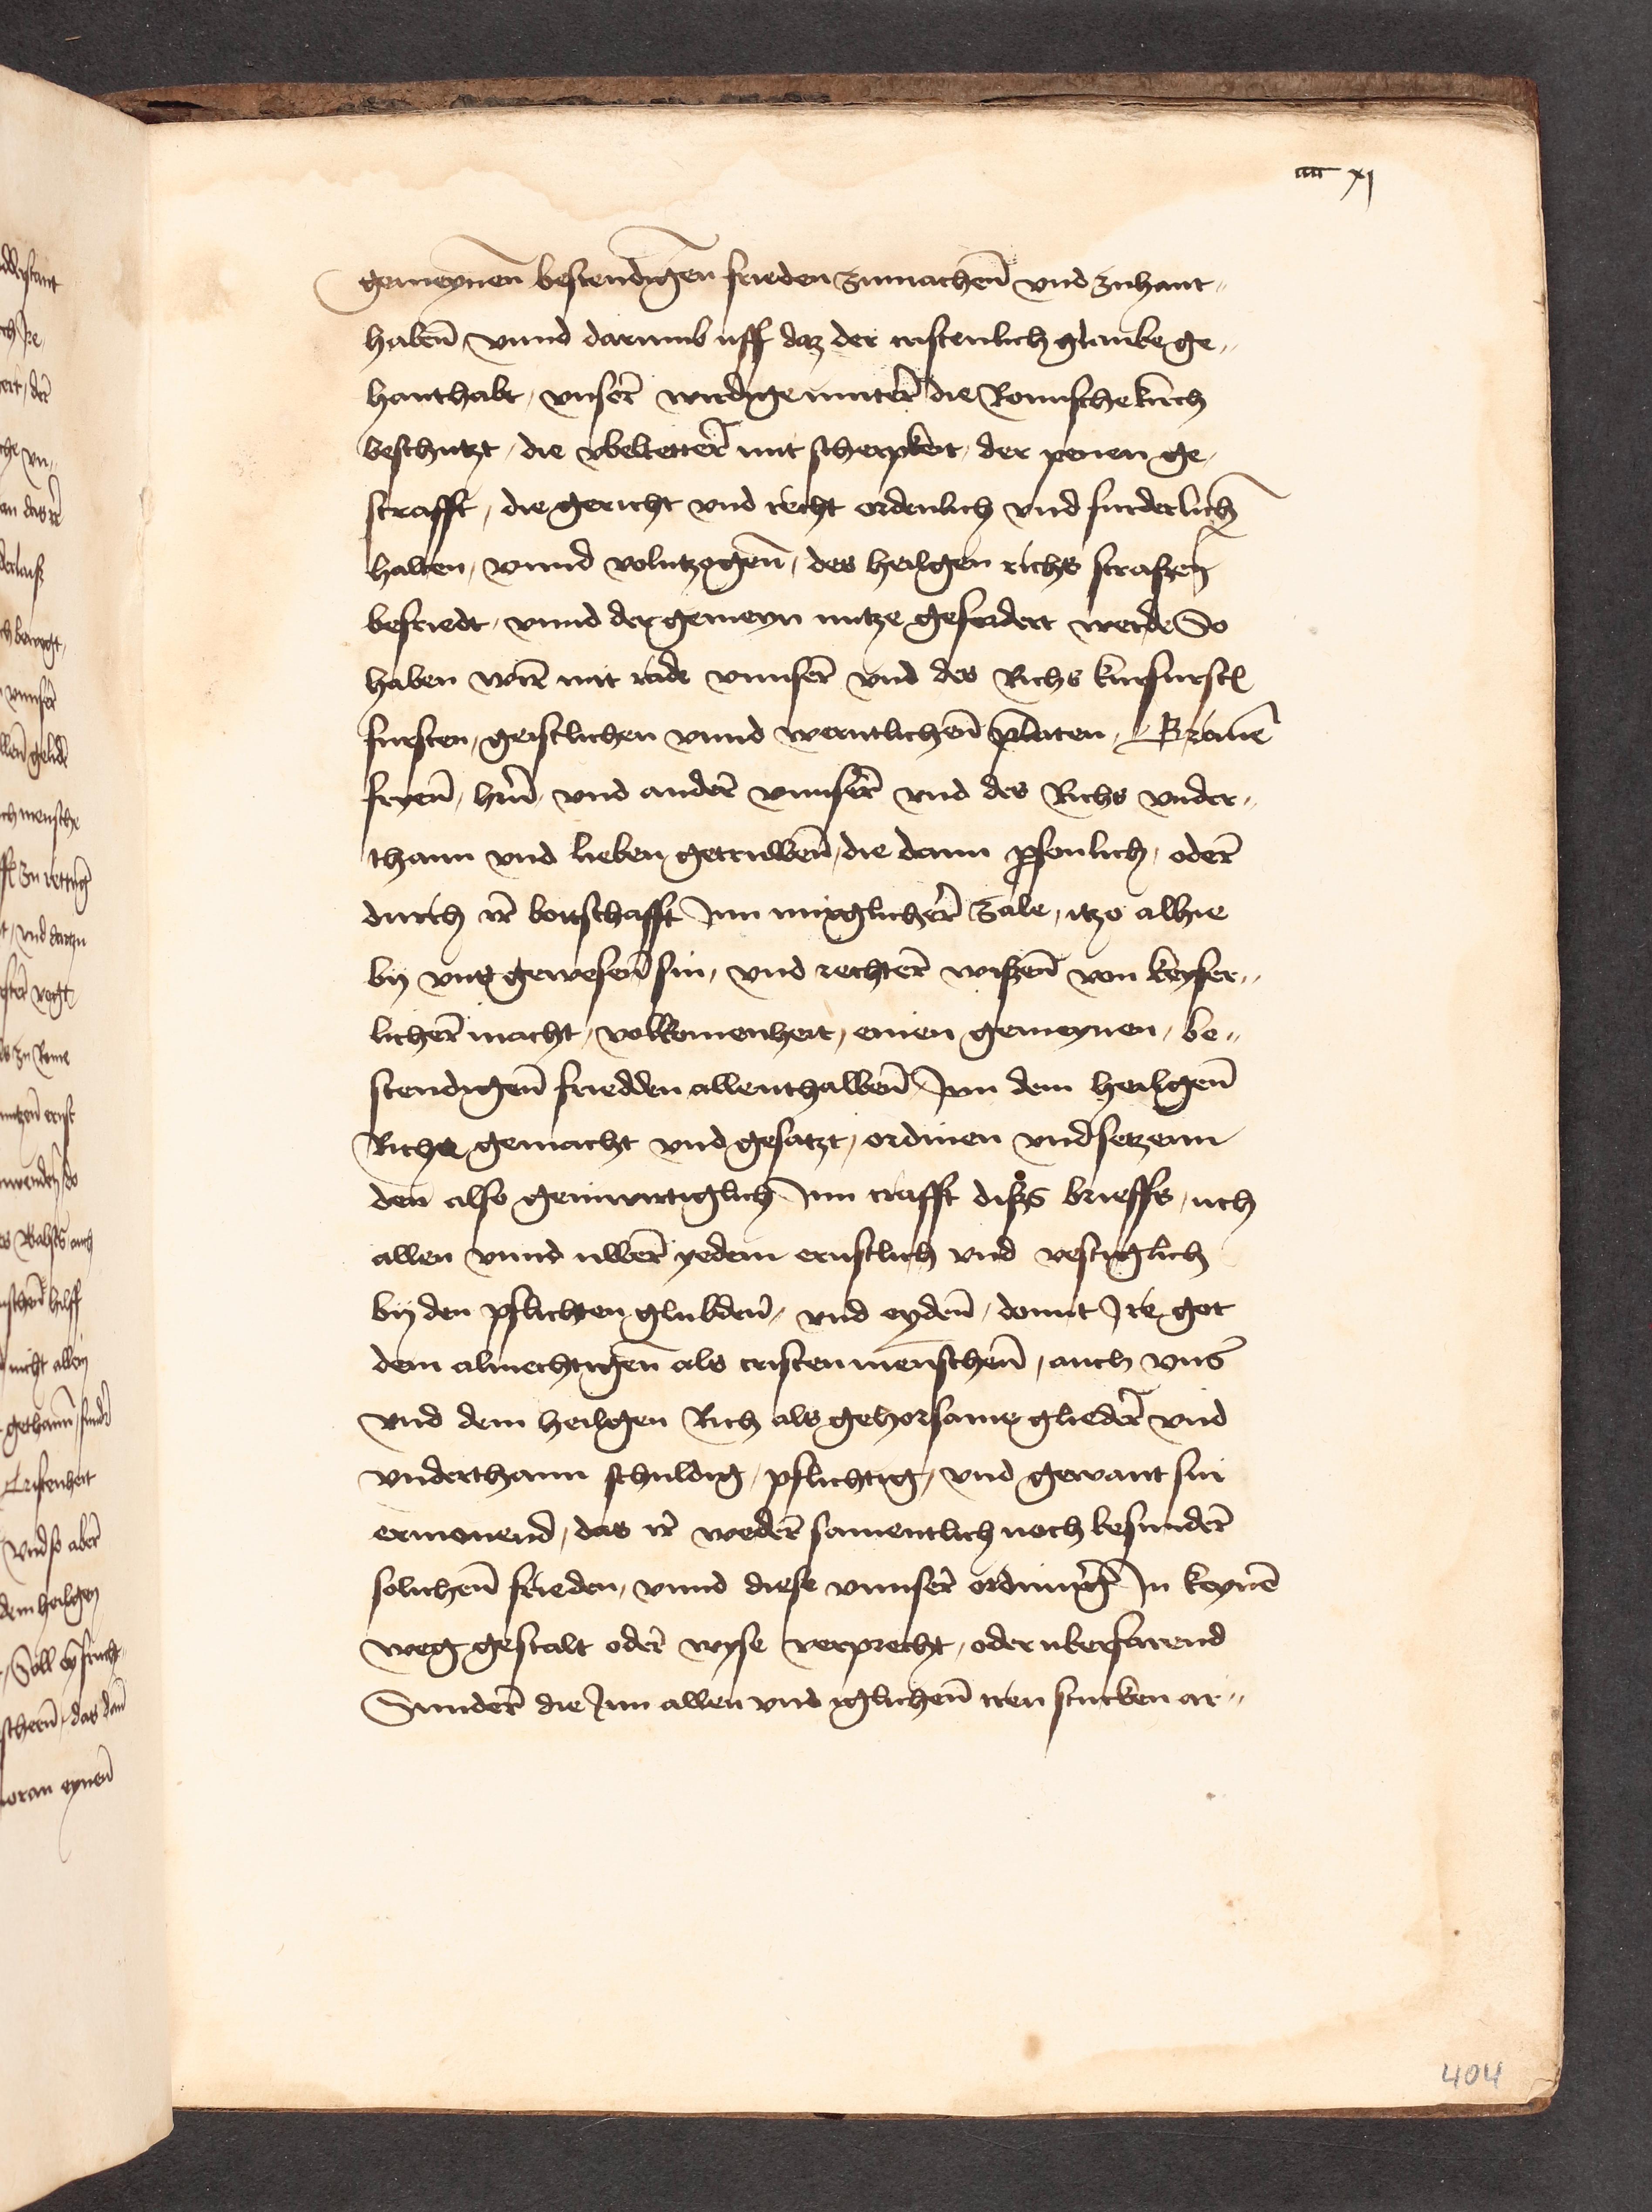 iiii xi
gemeynen bestendigen frieden zumachen vnd zuhant„
haben vnnd darumb uff daz der cristenlich glaube ge„
hanthabt, vnser wirdige muter die Romische kirch
beschutzt, die vbeltetter mit scherpkeit, der penen ge„
strafft, die gericht vnd recht ordenlich vnd furderlich
halten, vnnd volntzogen, des heilgen richs strassen
befriedt, vnnd der gemeyn nutze gefordert werde So
haben wir mit rade vnnser vnd des Richs kurfursten
fursten, geistlichen vnnd werntlichen prelaten, Grauen
fryen, hern, vnd ander vnnser vnd des Richs vnder„
thann vnd lieben getruwen, die dann personlich, oder
durch ir bottschafft Inn mirglicher zale, itzo alhie
by vns gewesen sin, vnd rechter wissen von keyser„
licher macht, volkomenheit, einen gemeynen, be„
stendigen friedden allenthalben Inn dem heilgen
Riche gemacht vnd gesatzt, ordinen vnd setzenn
den also geinwirtiglich Inn crafft diss brieffs, uch
allen vnnd uwer yedem ernstlich vnd vestiglich
by den pflichten glubden, vnd eyden, domit Ire got
dem almechtigen als cristen menschen, auch vns
vnd dem heilgen Rich als gehorsame glieder vnd
vnderthann schuldig, pflichtig, vnd gewant sin
ermonend, das ir weder sammentlich noch besunder
solichen frieden, vnnd diese vnnser ordnung In keynen
weg gestalt oder wyse verprecht, oder uberfarend
Sunder die Inn allen vnd iglichen iren stucken ar„
404